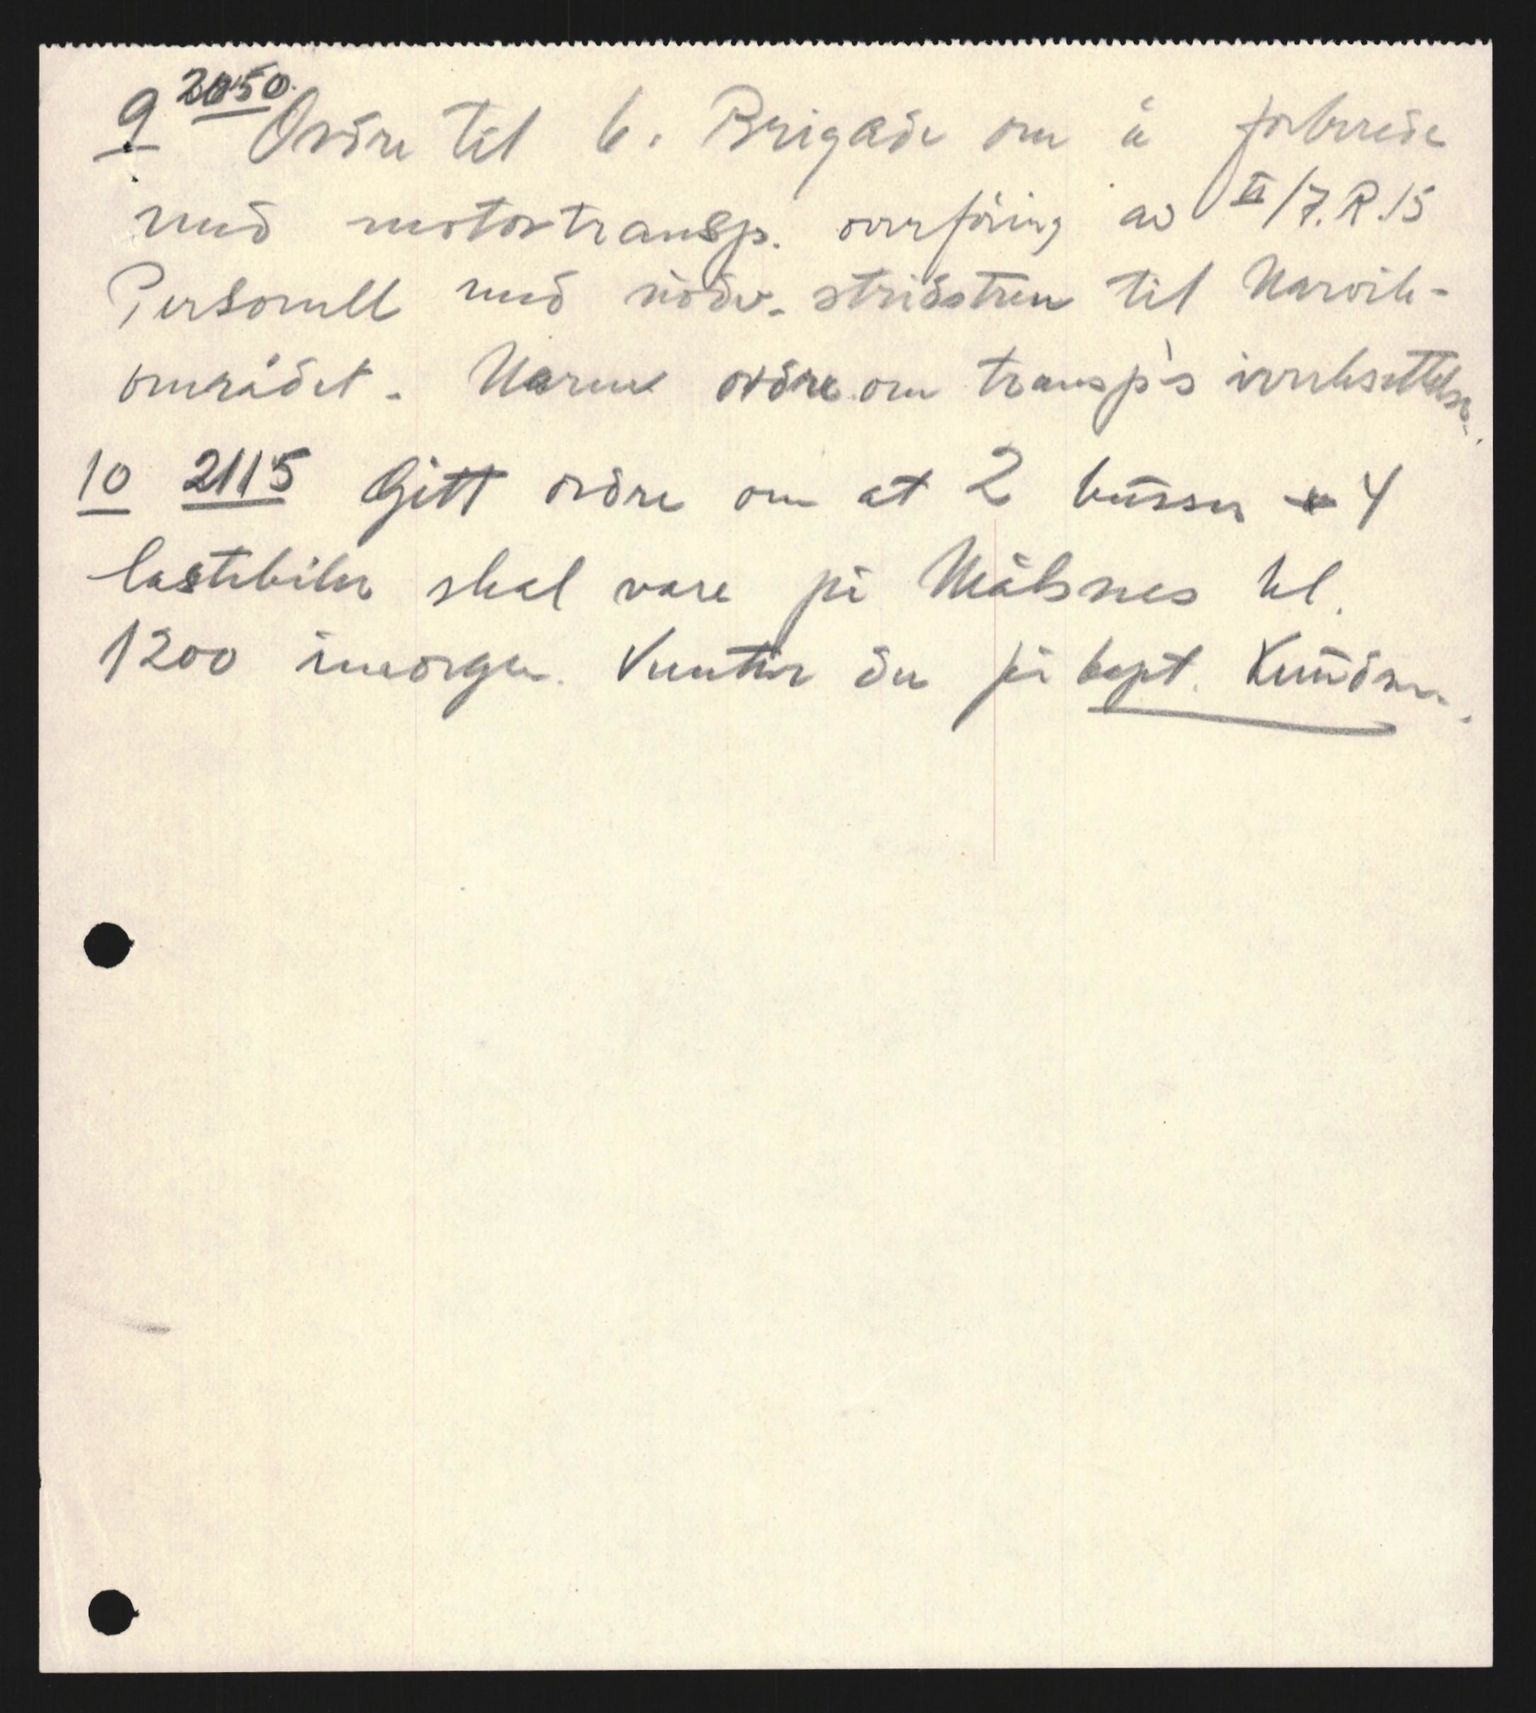 9 2050. Ordre til 6. Brigade om å forberede
med motortransp. overföring av II/I.R.15
Personell med nödv. stridstren til Narvik-
området. Nærme ordre om transp's iverksettelse.
10 2115 Gitt ordre om at 2 busser + 4
lastebiler skal være på Målsnes kl.
1200 imorgen. Venter der på kapt.